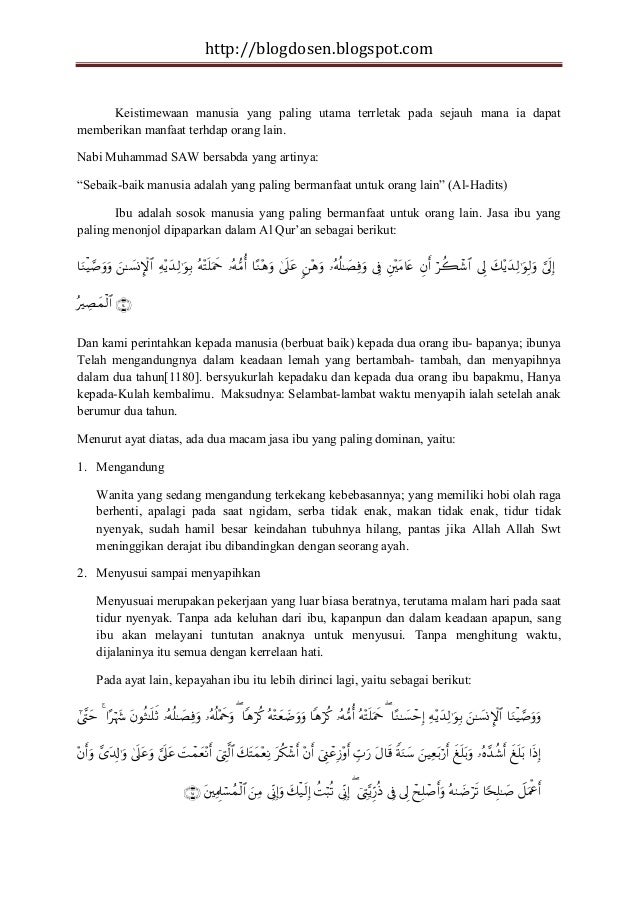 http://blogdosen.blogspot.com
Keistimewaan manusia yang paling utama terrletak pada sejauh mana ia dapat
memberikan manfaat terhdap orang lain.
Nabi Muhammad SAW bersabda yang artinya:
“Sebaik-baik manusia adalah yang paling bermanfaat untuk orang lain” (Al-Hadits)
Ibu adalah sosok manusia yang paling bermanfaat untuk orang lain. Jasa ibu yang
paling menonjol dipaparkan dalam Al Qur’an sebagai berikut:
وَوَصَّيْنَا ٱلْإِنسَـٰنَ بِوَٰلِدَيْهِ حَمَلَتْهُ أُمُّهُۥ وَهْنًا عَلَىٰ وَهْنٍ وَفِصَـٰلُهُۥ فِى عَامَيْنِ أَنِ ٱشْكُرْ لِى وَلِوَٰلِدَيْكَ إِلَىَّ
ٱلْمَصِيرُ ﴿١٤﴾
Dan kami perintahkan kepada manusia (berbuat baik) kepada dua orang ibu- bapanya; ibunya
Telah mengandungnya dalam keadaan lemah yang bertambah- tambah, dan menyapihnya
dalam dua tahun[1180]. bersyukurlah kepadaku dan kepada dua orang ibu bapakmu, Hanya
kepada-Kulah kembalimu.  Maksudnya: Selambat-lambat waktu menyapih ialah setelah anak
berumur dua tahun.
Menurut ayat diatas, ada dua macam jasa ibu yang paling dominan, yaitu:
1. Mengandung
Wanita yang sedang mengandung terkekang kebebasannya; yang memiliki hobi olah raga
berhenti, apalagi pada saat ngidam, serba tidak enak, makan tidak enak, tidur tidak
nyenyak, sudah hamil besar keindahan tubuhnya hilang, pantas jika Allah Allah Swt
meninggikan derajat ibu dibandingkan dengan seorang ayah.
2. Menyusui sampai menyapihkan
Menyusuai merupakan pekerjaan yang luar biasa beratnya, terutama malam hari pada saat
tidur nyenyak. Tanpa ada keluhan dari ibu, kapanpun dan dalam keadaan apapun, sang
ibu akan melayani tuntutan anaknya untuk menyusui. Tanpa menghitung waktu,
dijalaninya itu semua dengan kerrelaan hati.
Pada ayat lain, kepayahan ibu itu lebih dirinci lagi, yaitu sebagai berikut:
وَوَصَّيْنَا ٱلْإِنسَـٰنَ بِوَٰلِدَيْهِ إِحْسَـٰنًا ۖ حَمَلَتْهُ أُمُّهُۥ كُرْهًا وَوَضَعَتْهُ كُرْهًا ۖ وَحَمْلُهُۥ وَفِصَـٰلُهُۥ ثَلَـٰثُونَ شَهْرًا ۚ حَتَّىٰٓ
إِذَا بَلَغَ أَشُدَّهُۥ وَبَلَغَ أَرْبَعِينَ سَنَةً قَالَ رَبِّ أَوْزِعْنِىٓ أَنْ أَشْكُرَ نِعْمَتَكَ ٱلَّتِىٓ أَنْعَمْتَ عَلَىَّ وَعَلَىٰ وَٰلِدَىَّ وَأَنْ
أَعْمَلَ صَـٰلِحًا تَرْضَىٰهُ وَأَصْلِحْ لِى فِى ذُرِّيَّتِىٓ ۖ إِنِّى تُبْتُ إِلَيْكَ وَإِنِّى مِنَ ٱلْمُسْلِمِينَ ﴿١٥﴾